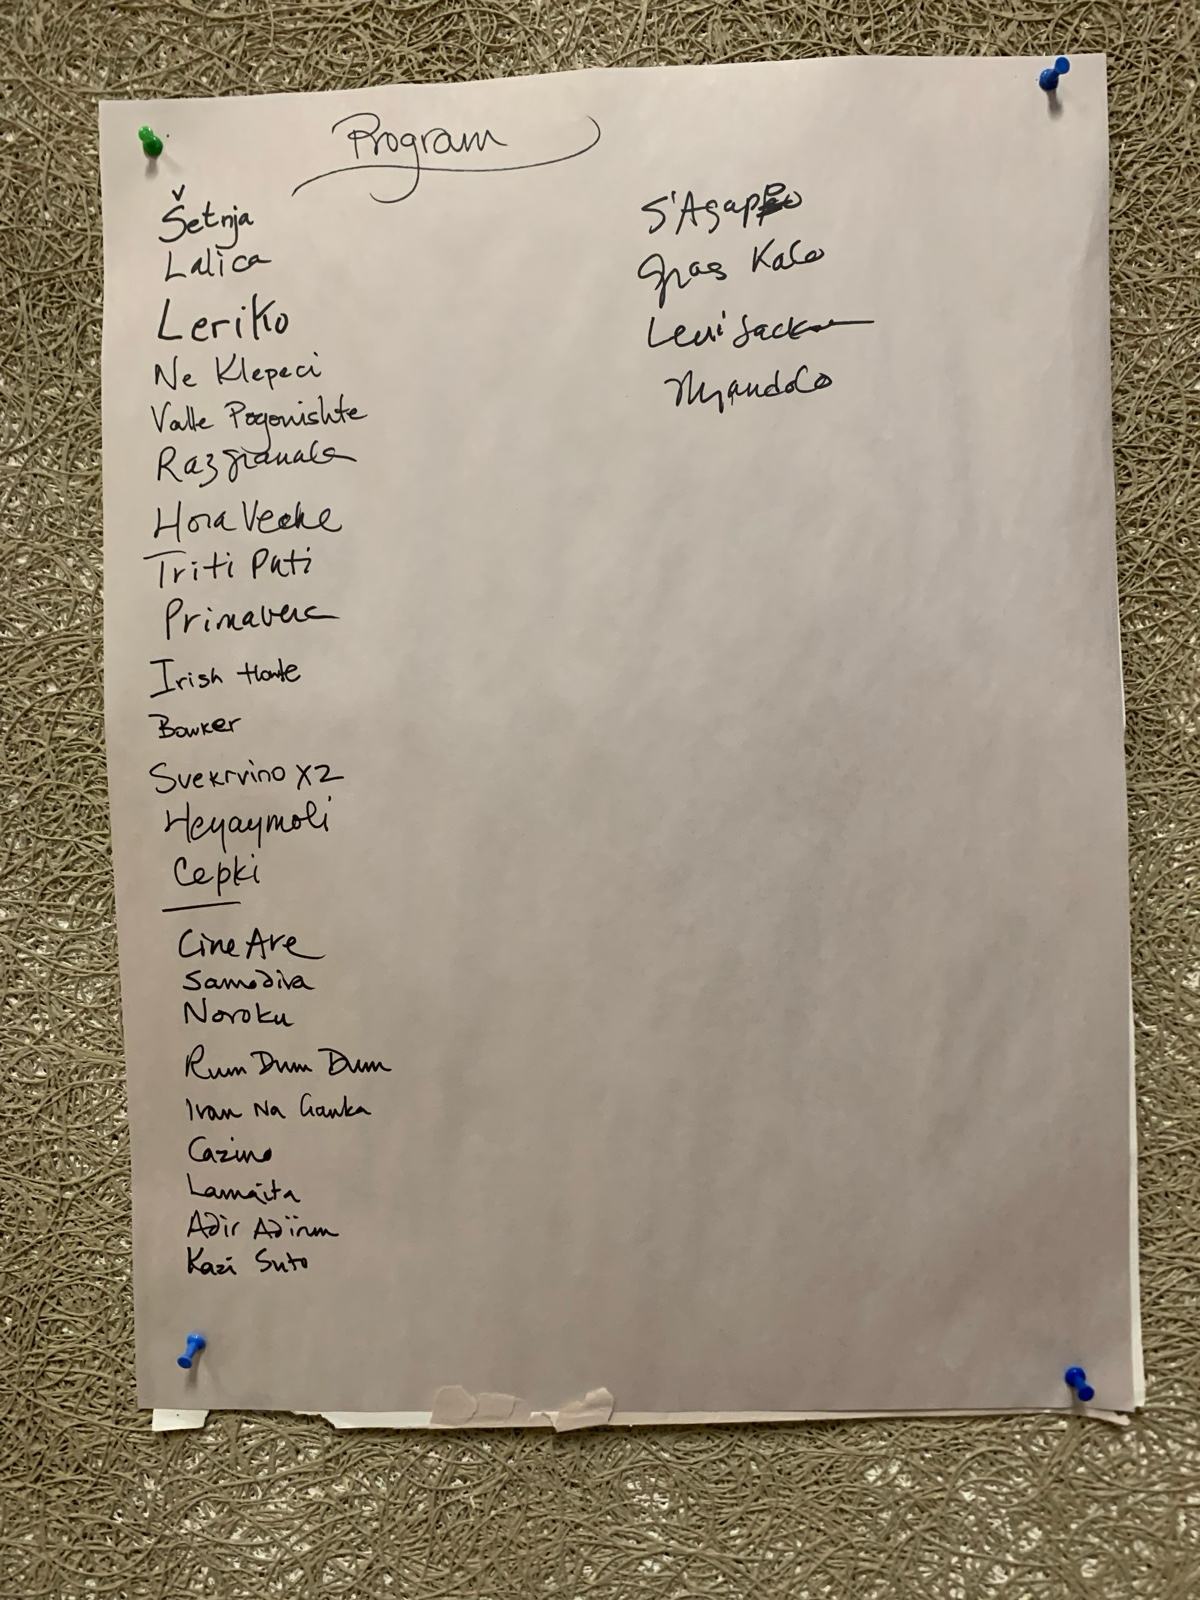 Program
Šetnja
Lalica
Leriko
Ne Klepeci
Valle Pogonishte
Hora Veche
Triti Puti
Primavera
Irish
Bowker
Svekrvino X2
Heyaymoli
Cepki
Cine Are
Samodiva
Noroku
Rum Dum Dum
Ivan Na Ganka
Cazino
Lamaita
Adir Adirim
Kazi Suto
S'Agapo
Kalo
Levi Jackson